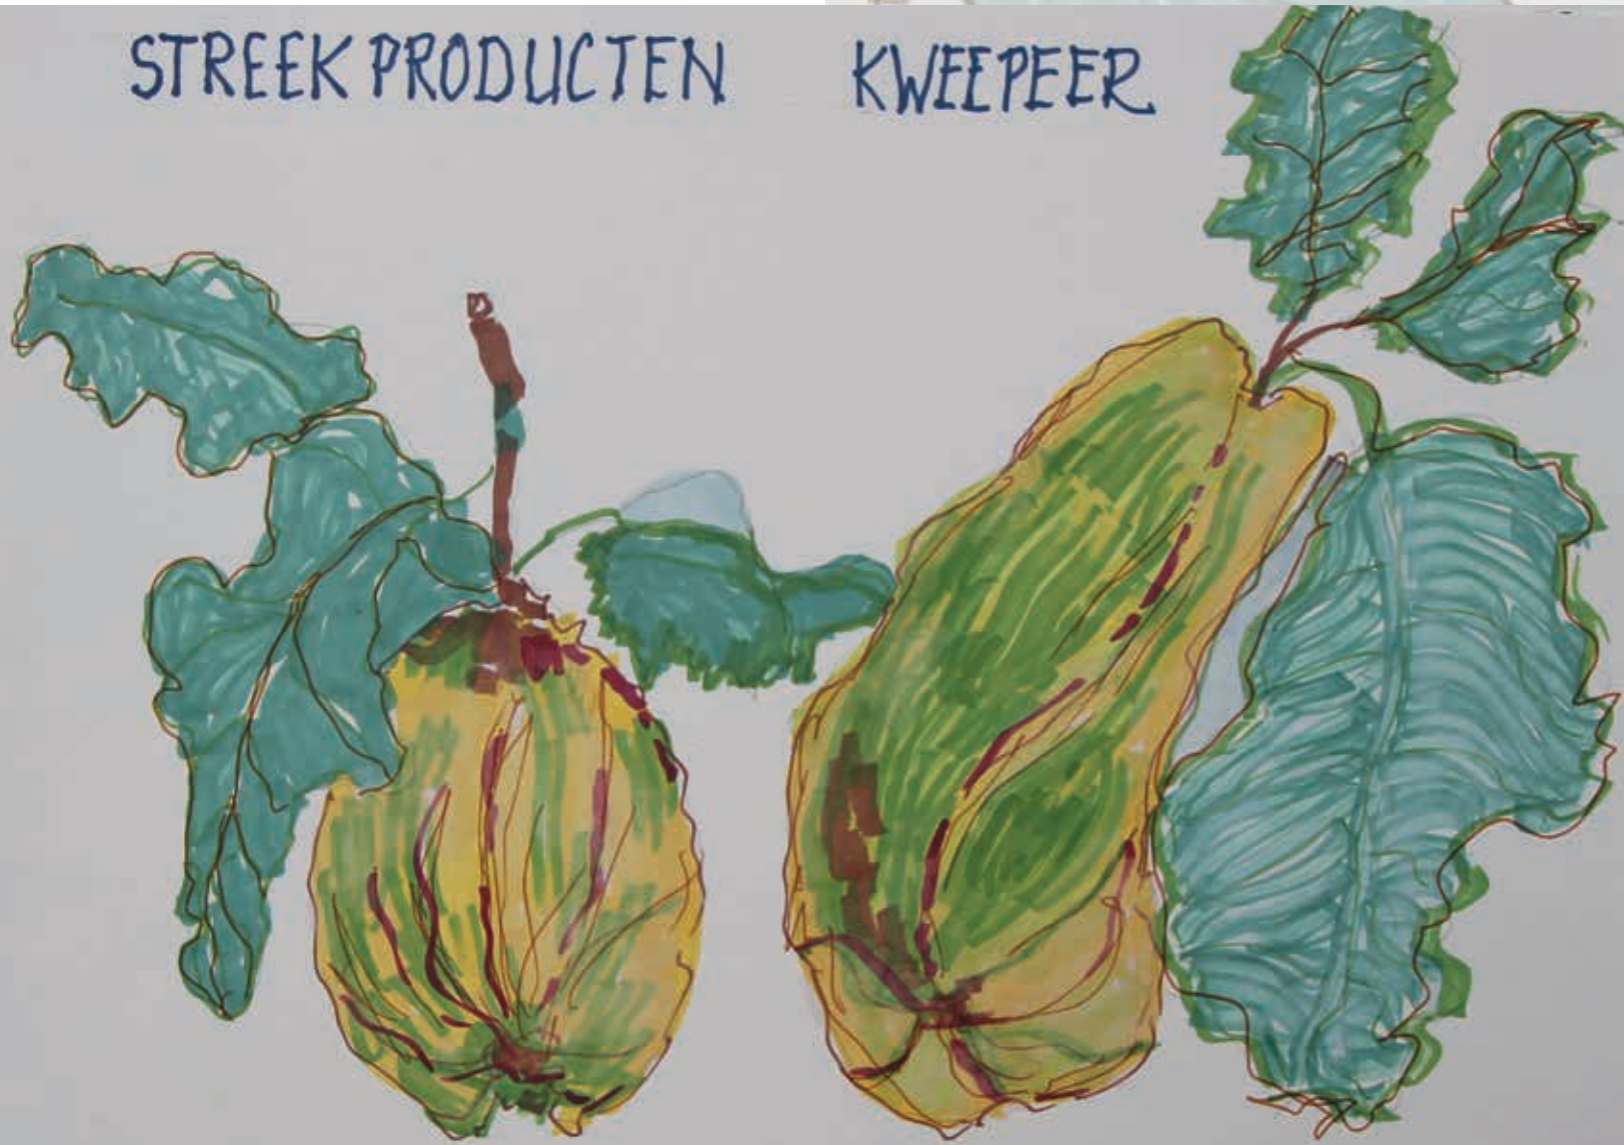 STREEK PRODUCTEN KWEEPEER